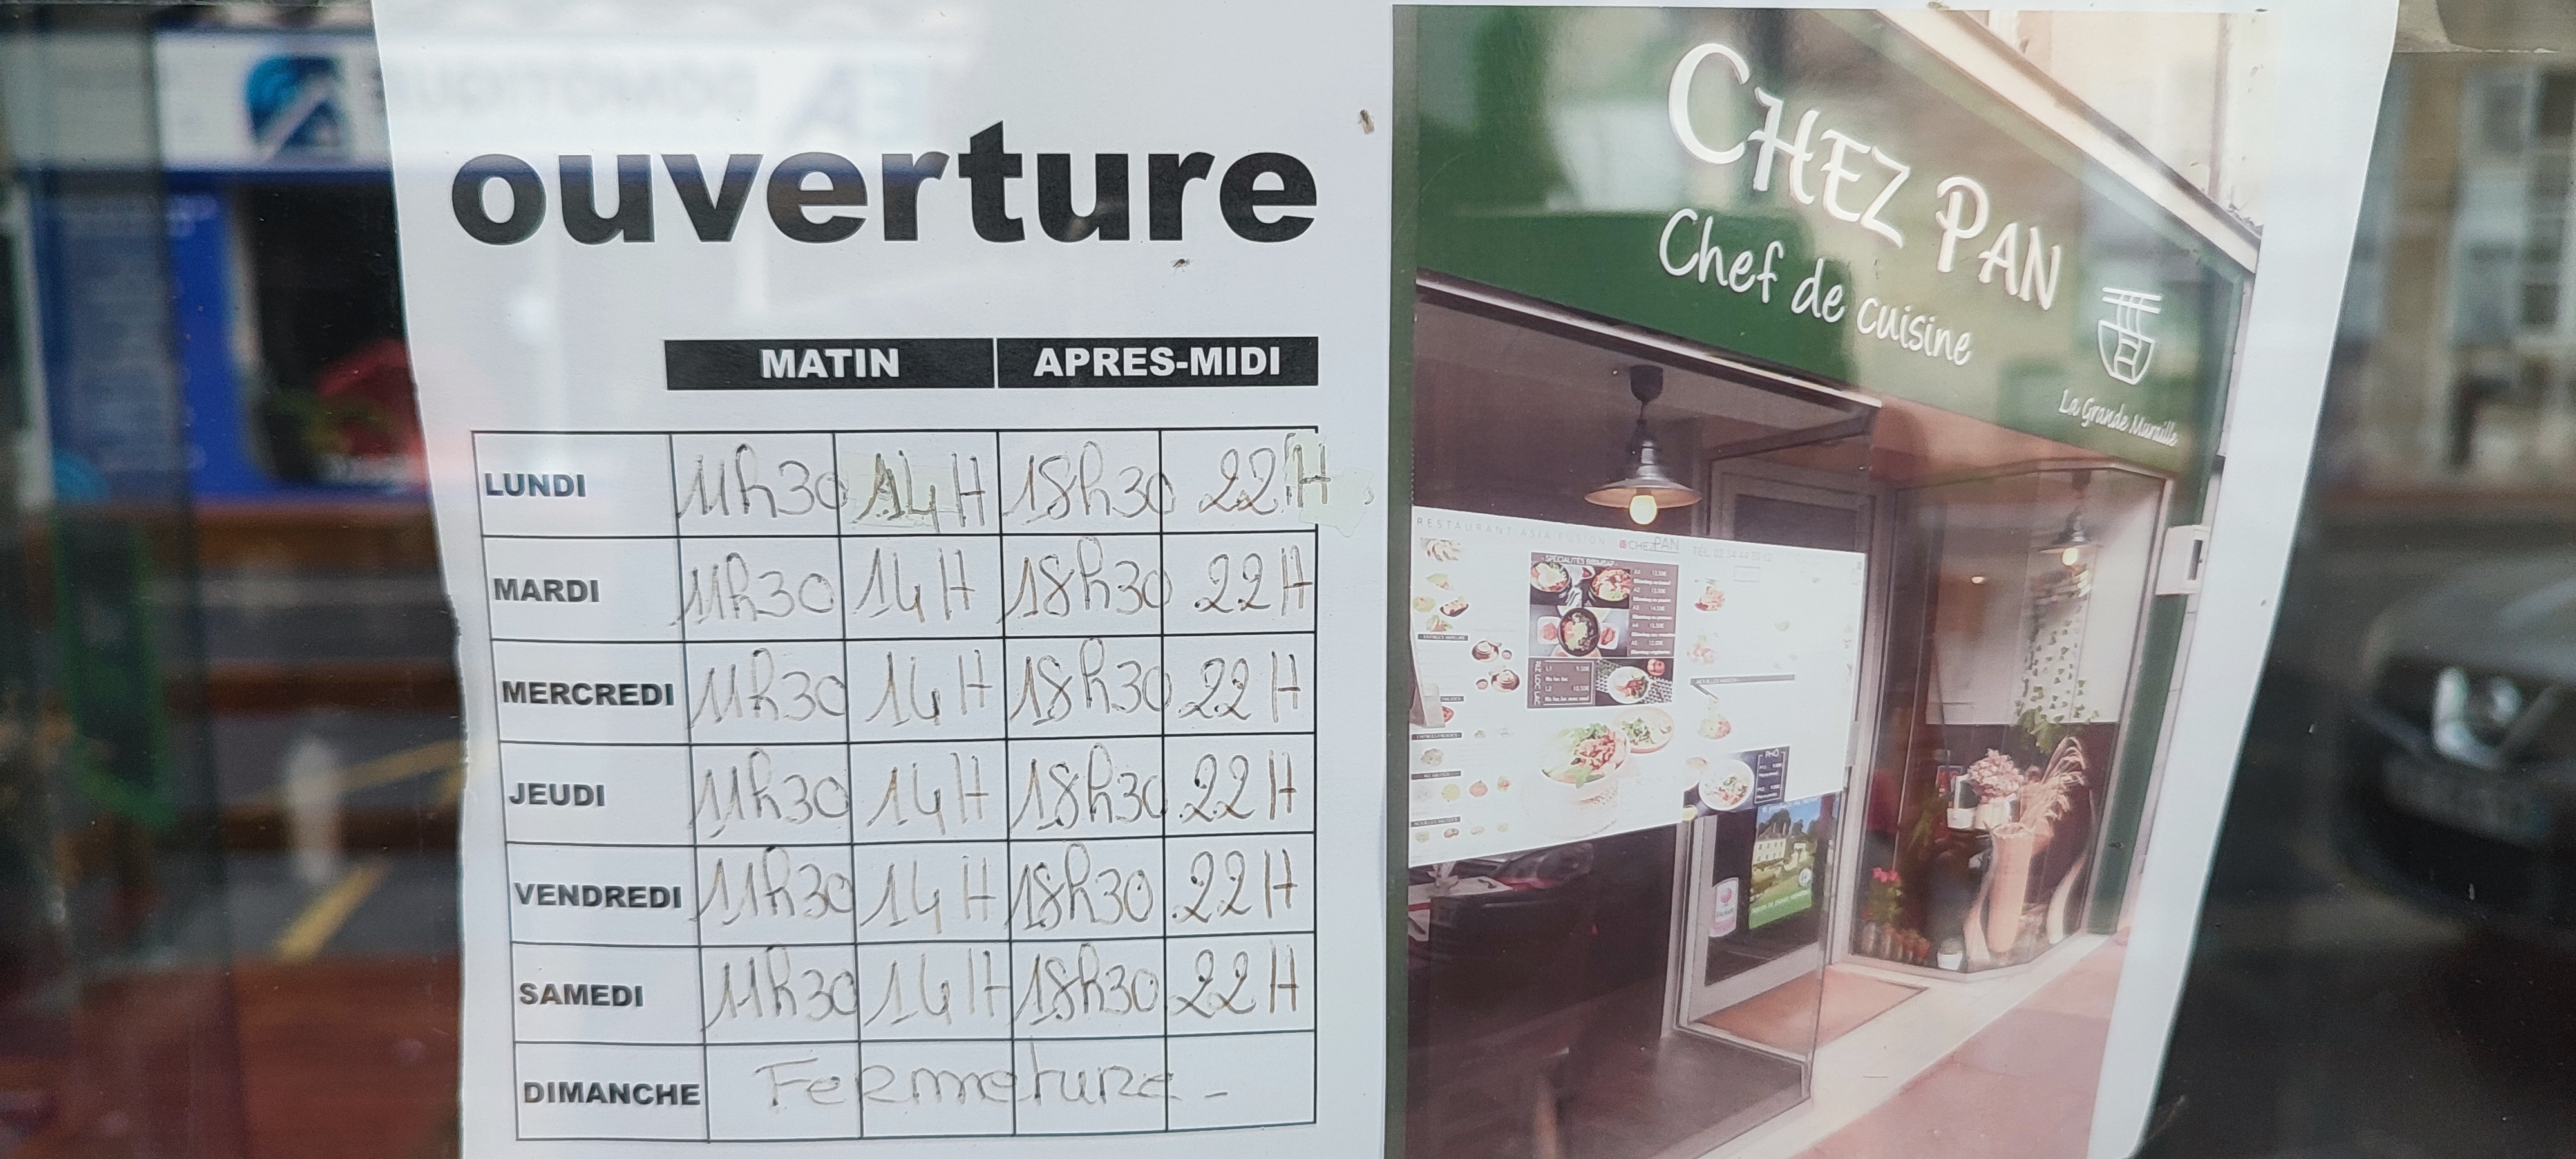 ouverture
MATIN APRES-MIDI
LUNDI 11h30 14H 18h30 22H
MARDI 11h30 14H 18h30 22H
MERCREDI 11h30 14H 18h30 22H
JEUDI 11h30 14H 18h30 22H
VENDREDI 11h30 14H 18h30 22H
SAMEDI 11h30 14H 18h30 22H
DIMANCHE Fermeture -
CHEZ PAN
Chef de cuisine
La Grande Muraille
RESTAURANT ASIA FUSION CHEZ PAN
PHỞ
DOMOTIQUE